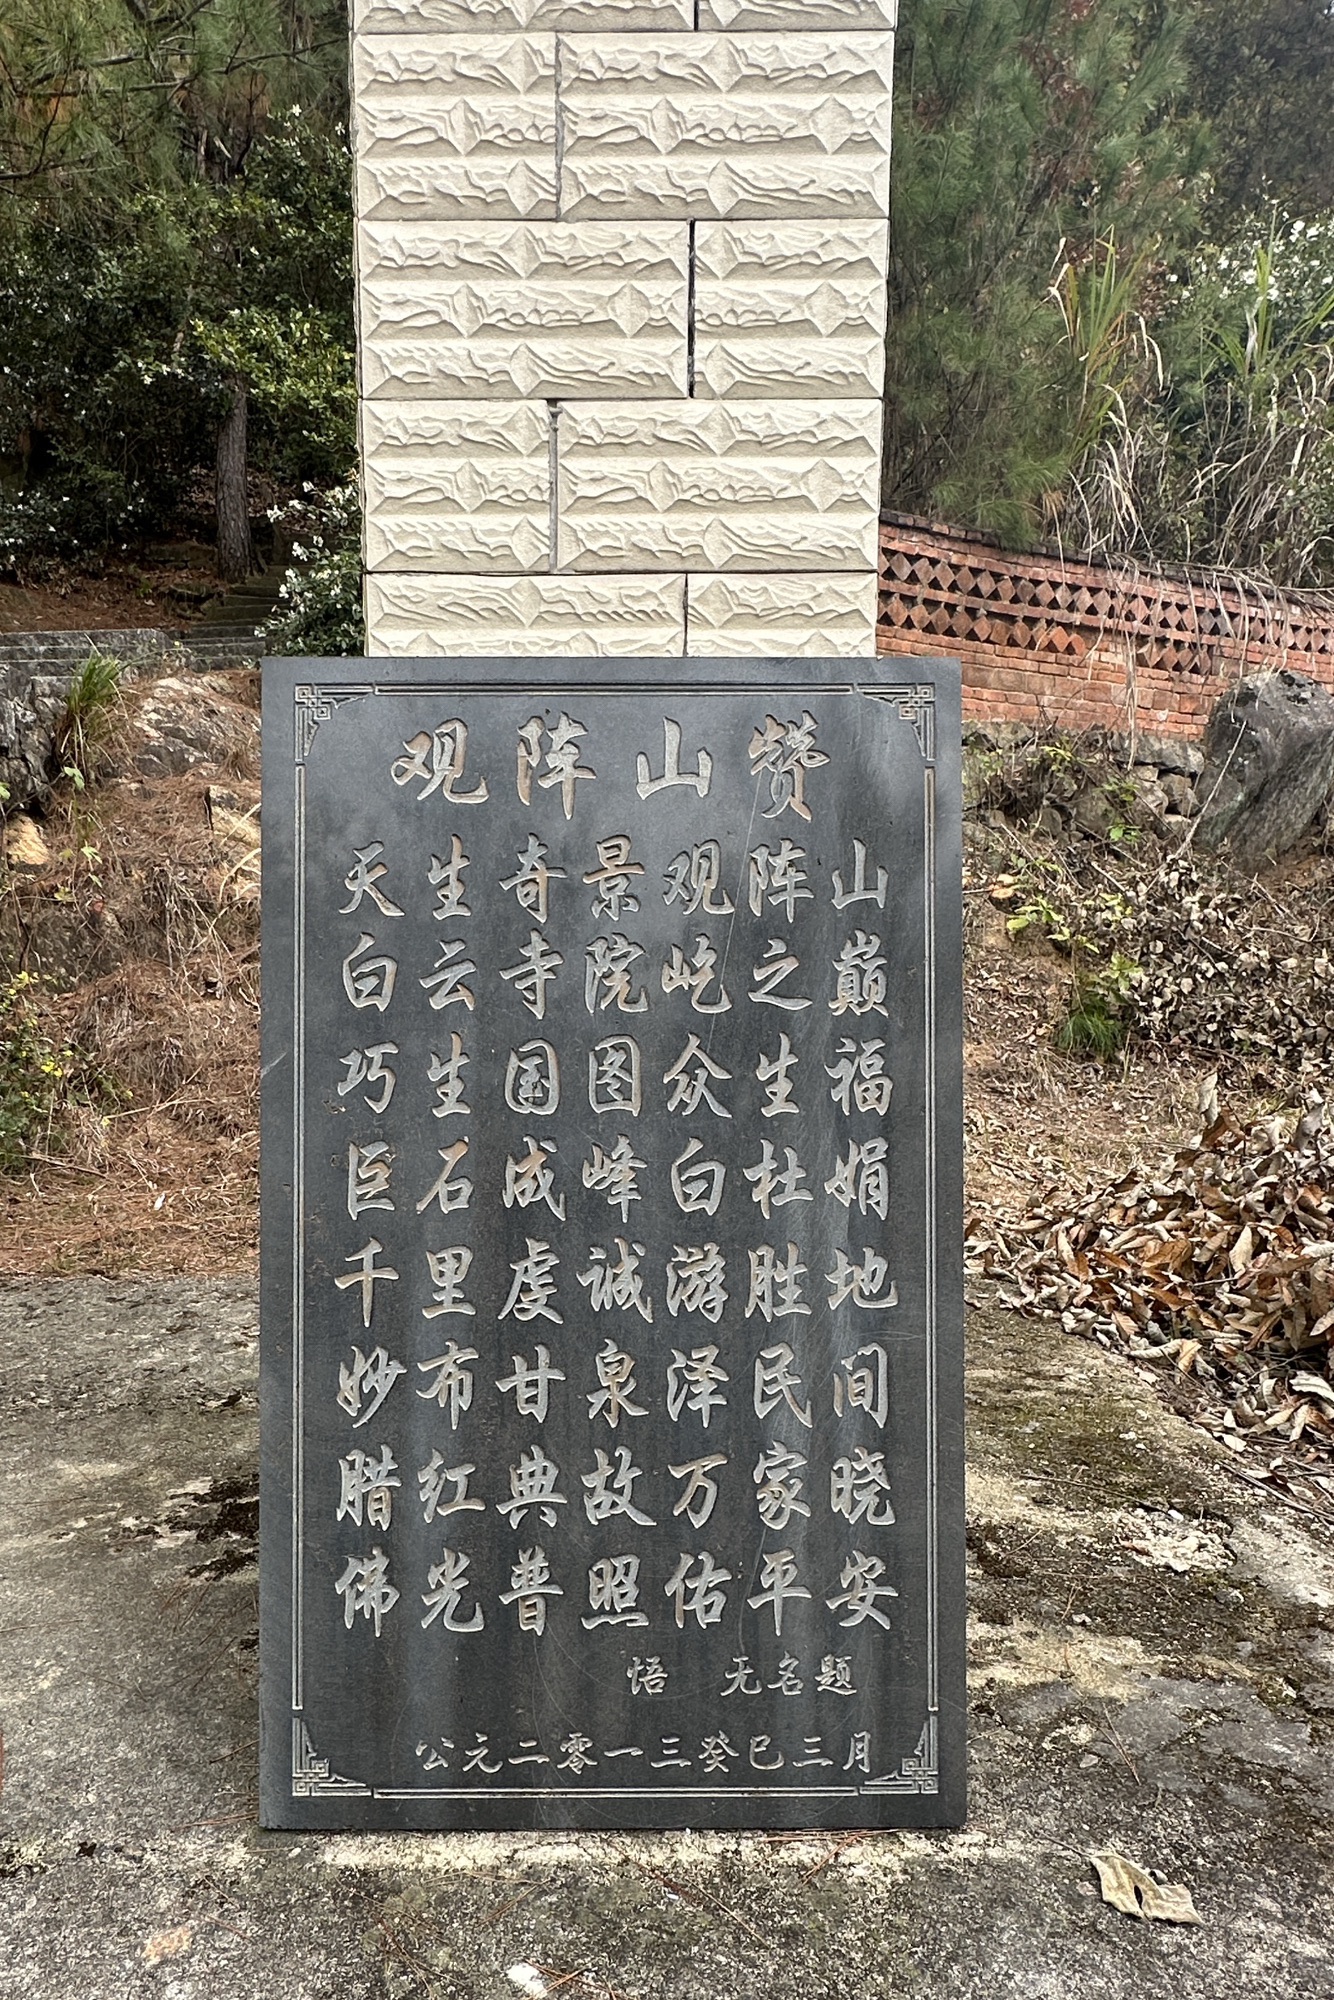 观阵山赞
灭生奇景观阵山
白云寺院屹之巅
巧生国图众生福
巨石成峰白杜娟
千里虔诚游胜地
妙布甘泉泽民间
腊红典故万家晓
佛光普照佑平安
悟 无名题
公元二零一三癸巳三月